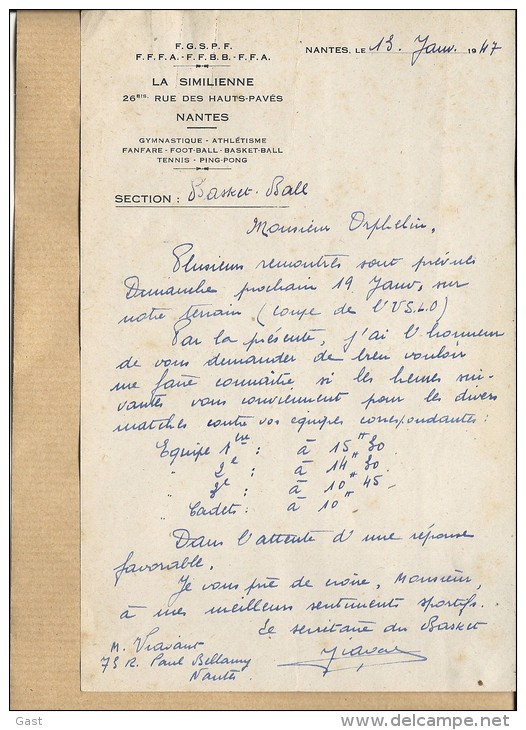 F.G.S.P.F.
F.F.F.A. - F.F.B.B. - F.F.A.
LA SIMILIENNE
26BIS. RUE DES HAUTS-PAVÉS
NANTES
GYMNASTIQUE - ATHLÉTISME
FANFARE - FOOT-BALL - BASKET-BALL
TENNIS - PING-PONG
NANTES, LE 13 Janv. 1947
SECTION : Basket-Ball
Monsieur Orphelin,
Plusieurs rencontres sont prévues
Dimanche prochain 19 Janv, sur
notre terrain (coupe de l'U.V.S.L.O)
Par la présente, j'ai l'honneur
de vous demander de bien vouloir
me faire connaître si les heures sui-
vantes vous conviennent pour les divers
matches contre vos équipes correspondantes :
Equipe 1ère : à 15H 30
" 2e : à 14H 30.
" 3e : à 10H 45 -
Cadets : à 10H -
Dans l'attente d'une réponse
favorable,
Je vous prie de croire, Monsieur,
à mes meilleurs sentiments sportifs..
Le secrétaire du Basket
M. Viavant
75 R. Paul Bellamy
Nantes.
Gast
www.delcampe.net